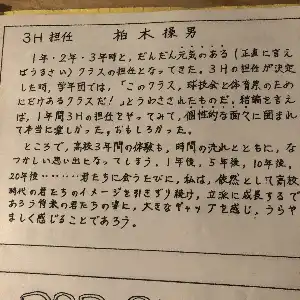 3H担任　柏木操男
1年・2年・3年時と、だんだん元気のある(正直に言え
ばうるさい)クラスの担任となってきた。3Hの担任が決定
した時、学年団では、「このクラス、球技会と体育祭のため
にだけあるクラスだ!」とうわさされたものだ。結論を言え
ば、1年間3Hの担任をやってみて、個性的な面々に囲まれ
て本当に楽しかった。おもしろかった。
ところで、高校3年間の体験も、時間の流れとともに、な
つかしい思い出となってしまう。1年後、5年後、10年後。
20年後‥‥‥君たちに会うたびに、私は、依然として高校
時代の君たちのイメージを引きずり続け、立派に成長するで
あろう将来の君たちの姿に、大きなギャップを感じ、うらや
ましく感じることであろう。